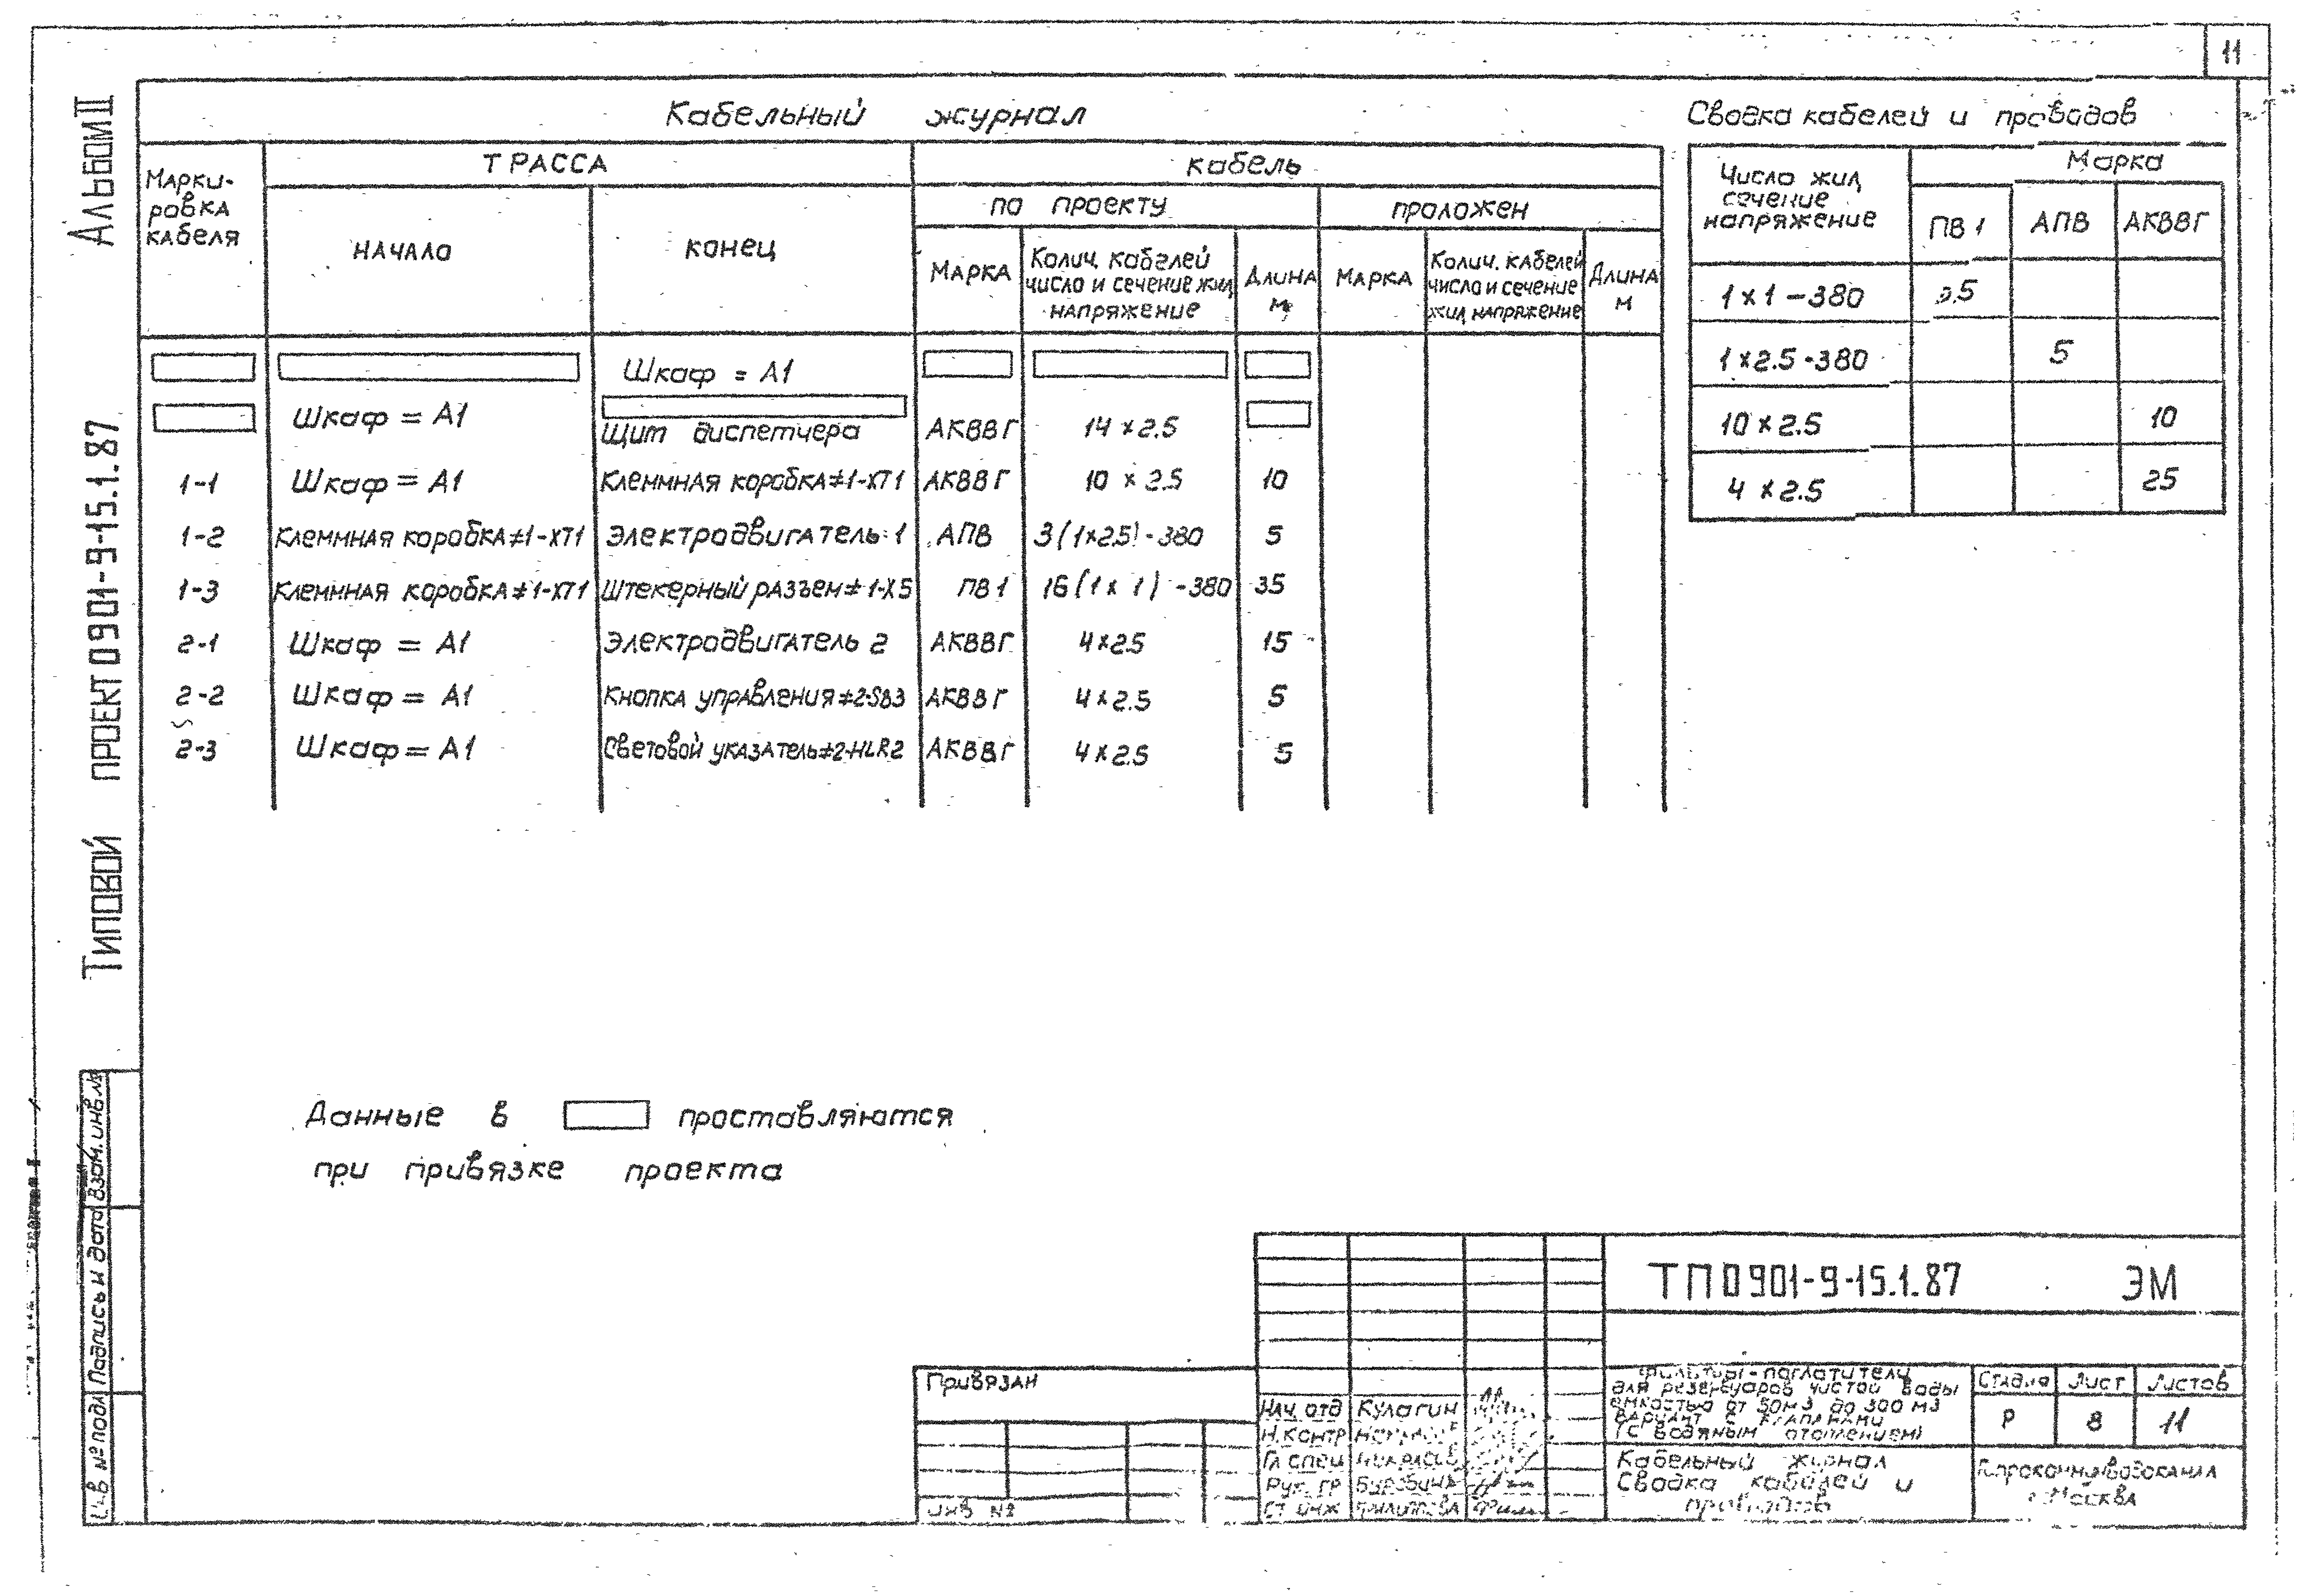 11
Альбом III
Типовой проект 0901-9-15.1.87
Кабельный журнал
Марки-
ровка
кабеля
Трасса
начало
конец
кабель
по проекту
проложен
Марка
Колич. кабелей
число и сечение жил
напряжение
Длина
м
Марка
Колич. кабелей
число и сечение
жил напряжение
Длина
м
Шкаф = А1
Шкаф = А1 Щит диспетчера АКВВГ 14 × 2.5
1-1 Шкаф = А1 Клеммная коробка ≠1-ХТ1 АКВВГ 10 × 2.5 10
1-2 Клеммная коробка ≠1-ХТ1 Электродвигатель 1 АПВ 3(1×2.5)-380 5
1-3 Клеммная коробка ≠1-ХТ1 Штекерный разъем ≠1-Х5 ПВ1 16(1×1)-380 35
2-1 Шкаф = А1 Электродвигатель 2 АКВВГ 4×2.5 15
2-2 Шкаф = А1 Кнопка управления ≠2-SB3 АКВВГ 4×2.5 5
2-3 Шкаф = А1 Световой указатель ≠2-HLR2 АКВВГ 4×2.5 5
Сводка кабелей и проводов
Число жил
сечение
напряжение
Марка
ПВ1 АПВ АКВВГ
1×1-380
1×2.5-380 5
10×2.5 10
4×2.5 25
Данные в проставляются
при привязке проекта
Взам. инв. №
Подпись и дата
Инв № подл
ТП 0901-9-15.1.87 ЭМ
Привязан
Инв №
Нач. отд Кулагин
Н. контр
Гл спец
Рук. гр
Ст инж
Фильтры-поглотители
для резервуаров чистой воды
емкостью от 50м3 до 300 м3
Вариант с клапанами
(с водяным отоплением)
Стадия Лист Листов
Р 8 11
Кабельный журнал
Сводка кабелей и
проводов
Гипрокоммунводоканал
г. Москва